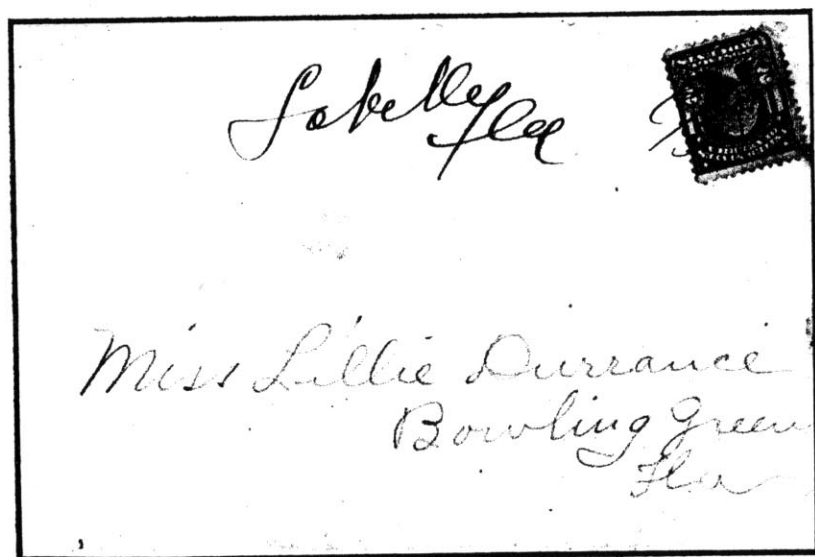 Labelle Fla
Miss Lillie Durrance
Bowling Green
Fla